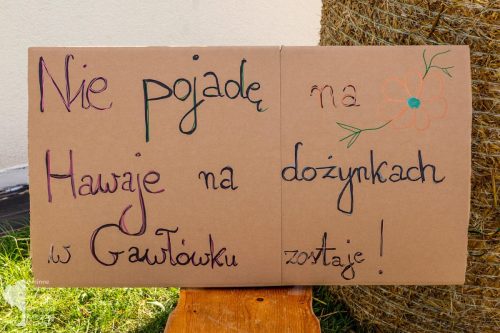 Nie pojadę na
Hawaje na dożynkach
w Gawłówku zostaje!